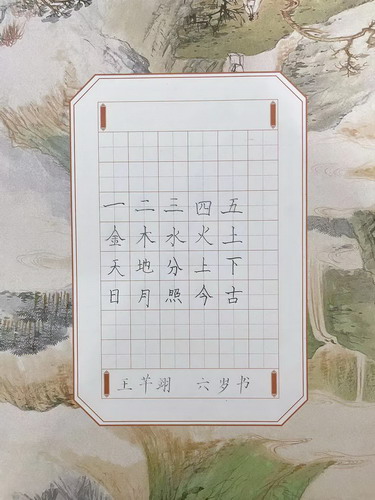 一二三四五
金木水火土
天地分上下
日月照今古
王芊翊 六岁书